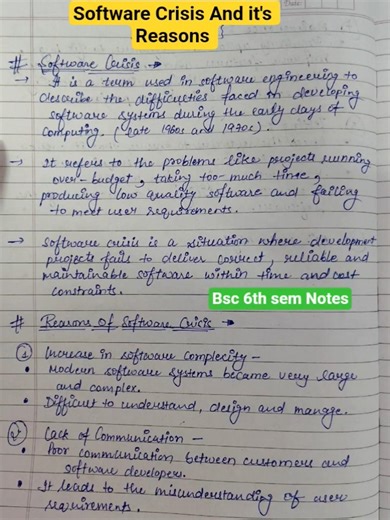 Software Crisis And it's
Reasons
# Software Crisis :→
→ It is a term used in software engineering to
describe the difficulties faced in developing
software systems during the early days of
computing. (late 1960s and 1970s).
→ It refers to the problems like projects running
over-budget, taking too-much time,
producing low quality software and failing
to meet user requirements.
→ Software crisis is a situation where development
projects fails to deliver correct, reliable and
maintainable software within time and cost
constraints.
Bsc 6th sem Notes
# Reasons Of Software Crisis →
① Increase in software Complexity –
• Modern software systems became very large
and complex.
• Difficult to understand, design and manage.
② Lack of Communication –
• Poor communication between customers and
software developers.
• It leads to the misunderstanding of user
requirements.